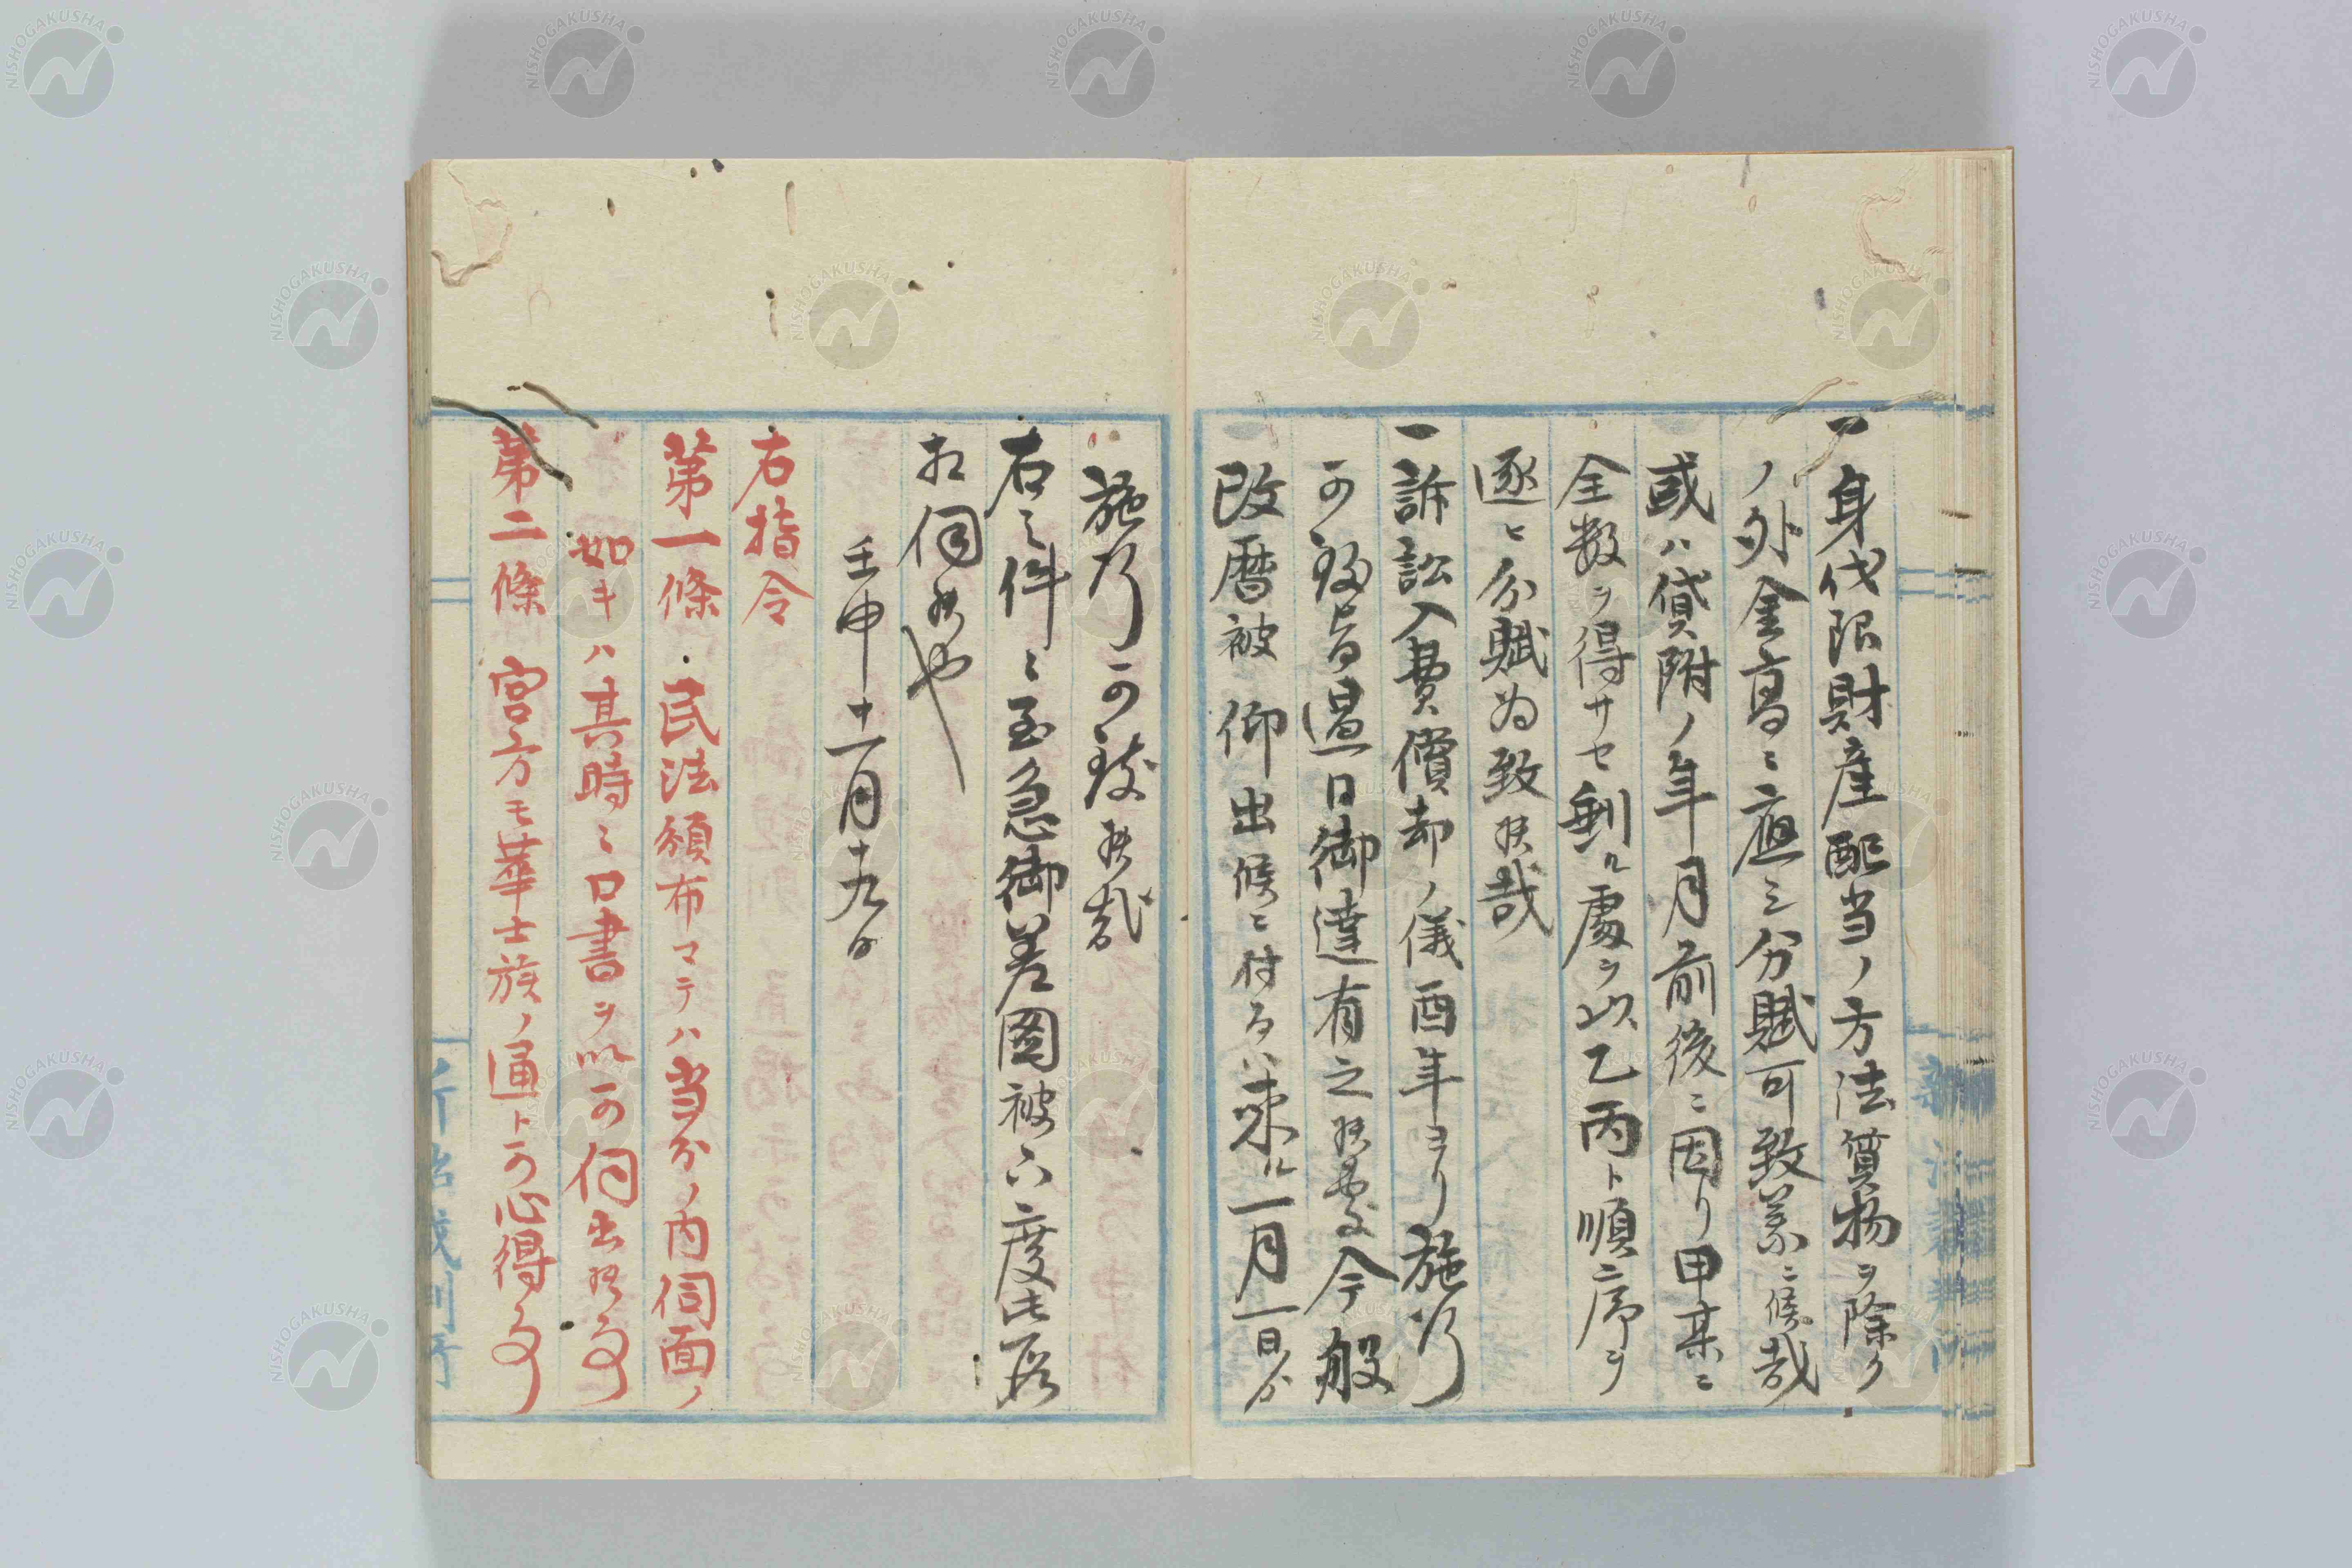 一身代限財産配当ノ方法質物ヲ除ク
ノ外金高ニ應シ分賦可致筈ニ候哉
或ハ貸附ノ年月前後ニ因リ甲某ニ
全数ヲ得サセ剰ル處ヲ以乙丙ト順序ヲ
逐ヒ分賦為致候哉
一訴訟入費償却ノ儀酉年ヨリ施行
可致旨過日御達有之候處今般
改暦被仰出候ニ付テハ来ル一月一日ゟ
施行可致候哉
右之件々至急御差図被下度此段
相伺候也
壬申十一月十九日
右指令
第一條 民法頒布マテハ当分ノ内伺面ノ
如キハ其時々口書ヲ以可伺出候事
第二條 宮方モ華士族ノ通ト可心得事
NISHOGAKUSHA